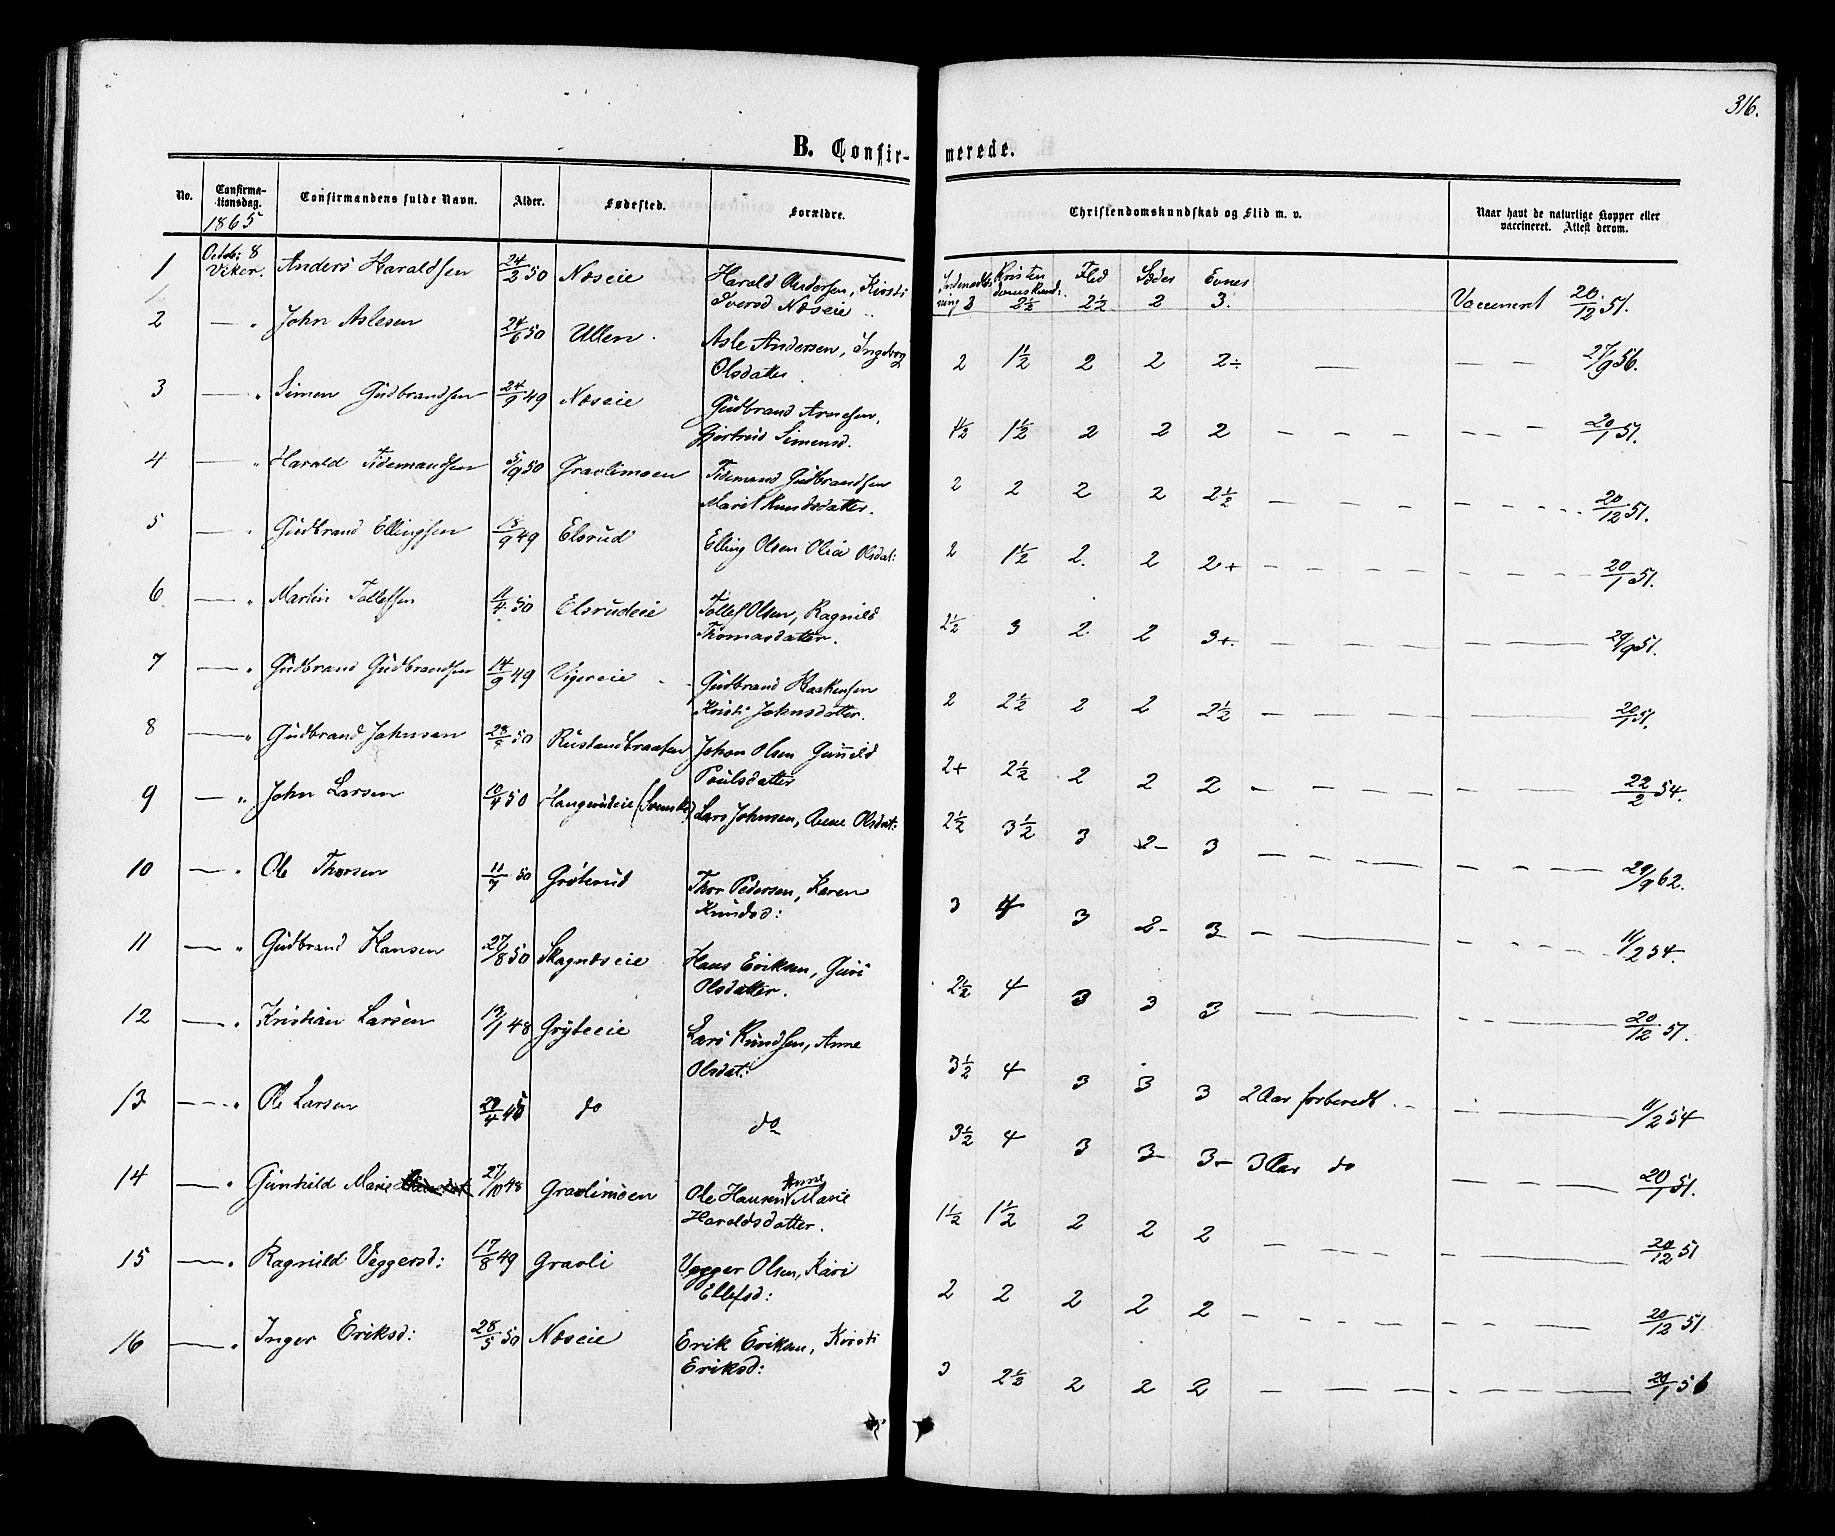 316.
B. Confirmerede.
No. Confirmationsdag. Confirmandens fulde Navn. Alder. Fødested. Forældre. Christendomskundskab og Flid m. v. Naar havt de naturlige Kopper eller vaccineret. Attest derom.
1865
1 Octob: 8 Viker. Anders Haraldsen 24/2 50 Næseie Harald Andersen, Kirsti
Iversd Næseie 3 Kristendomskund: 2½ Flid 2½ Sæder 2 Evner 3. Vaccineret 20/12 51.
2 — " John Aslesen 24/6 50 Ullen Asle Andersen, Ingeborg
Olsdatter 2 1½ 2 2 2÷ — — — 27/9 56.
3 — " Simen Gudbrandsen 24/9 49 Næseie Gudbrand Arnesen,
Gjertrud Simensd. 1½ 1½ 2 2 2 20/1 51.
4 — " Harald Tidemandsen 5/9 50 Gravlimoen Tidemand Gudbrandsen
Marit Knudsdatter. 2 2 2 2 2½ 20/12 51.
5 — " Gudbrand Ellingsen 18/9 49 Elsrud Elling Olsen Olia Olsdat: 2 1½ 2. 2 2+ 20/1 51.
6 — " Martin Tollefsen 11/4 50 Elsrudeie Tollef Olsen, Ragnild
Thomasdatter. 2½ 3 2 2 3+. 29/9 51.
7 — " Gudbrand Gudbrandsen 14/9 49 Vigereie Gudbrand Haakensen
Kristi Johnsdatter. 2 2½ 2 2 2½ 20/1 51.
8 — " Gudbrand Johnsen 50 Rustandbraaten Johan Olsen Gunild
Poulsdatter 2+ 2½ 2 2 2 22/2 54.
9 — " John Larsen 10/4 50 Haugerudeie Lars Johnsen, Anne Olsdat: 2½ 3½ 3 2- 3 29/9 62.
10 — " Ole Thorsen 11/7 50 Grøterud Thor Pedersen, Karen
Knudsd: 3 4 3 2- 3 11/2 54.
11 — " Gudbrand Hansen 27/8 50 Skagnæseie Hans Eriksen, Guri
Olsdatter. 2½ 4 3 3 3 20/12 51.
12 — " Kristian Larsen 13/1 48 Gryteeie Lars Knudsen, Anne
Olsdat: 3½ 4 3 3 3 2 Aar forberedt 11/2 54
13 — " Ole Larsen 29/4 do do 3½ 4 3 3- 3- 3 Aar do 20/1 51.
14 — " Gunhild Marie 27/10 48 Gravlimoen Ole Hansen, Anne Marie
Haraldsdatter. 1½ 1½ 2 2 2 20/12 51
15 — " Ragnild Veggersd: 17/8 49 Gravli Vegger Olsen, Kari
Ellefsd: 2 2 2 2 2 20/12 51
16 — " Inger Eriksd: 28/5 50 Næseie Erik Eriksen, Kirsti
Eriksd: 3 2½ 2 2 2 20/1 56